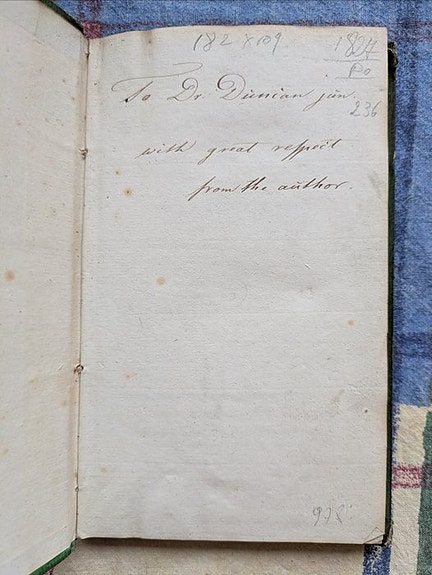 182 x 109
1827
Po
To Dr Duncan jun.
236
with great respect
from the author.
978